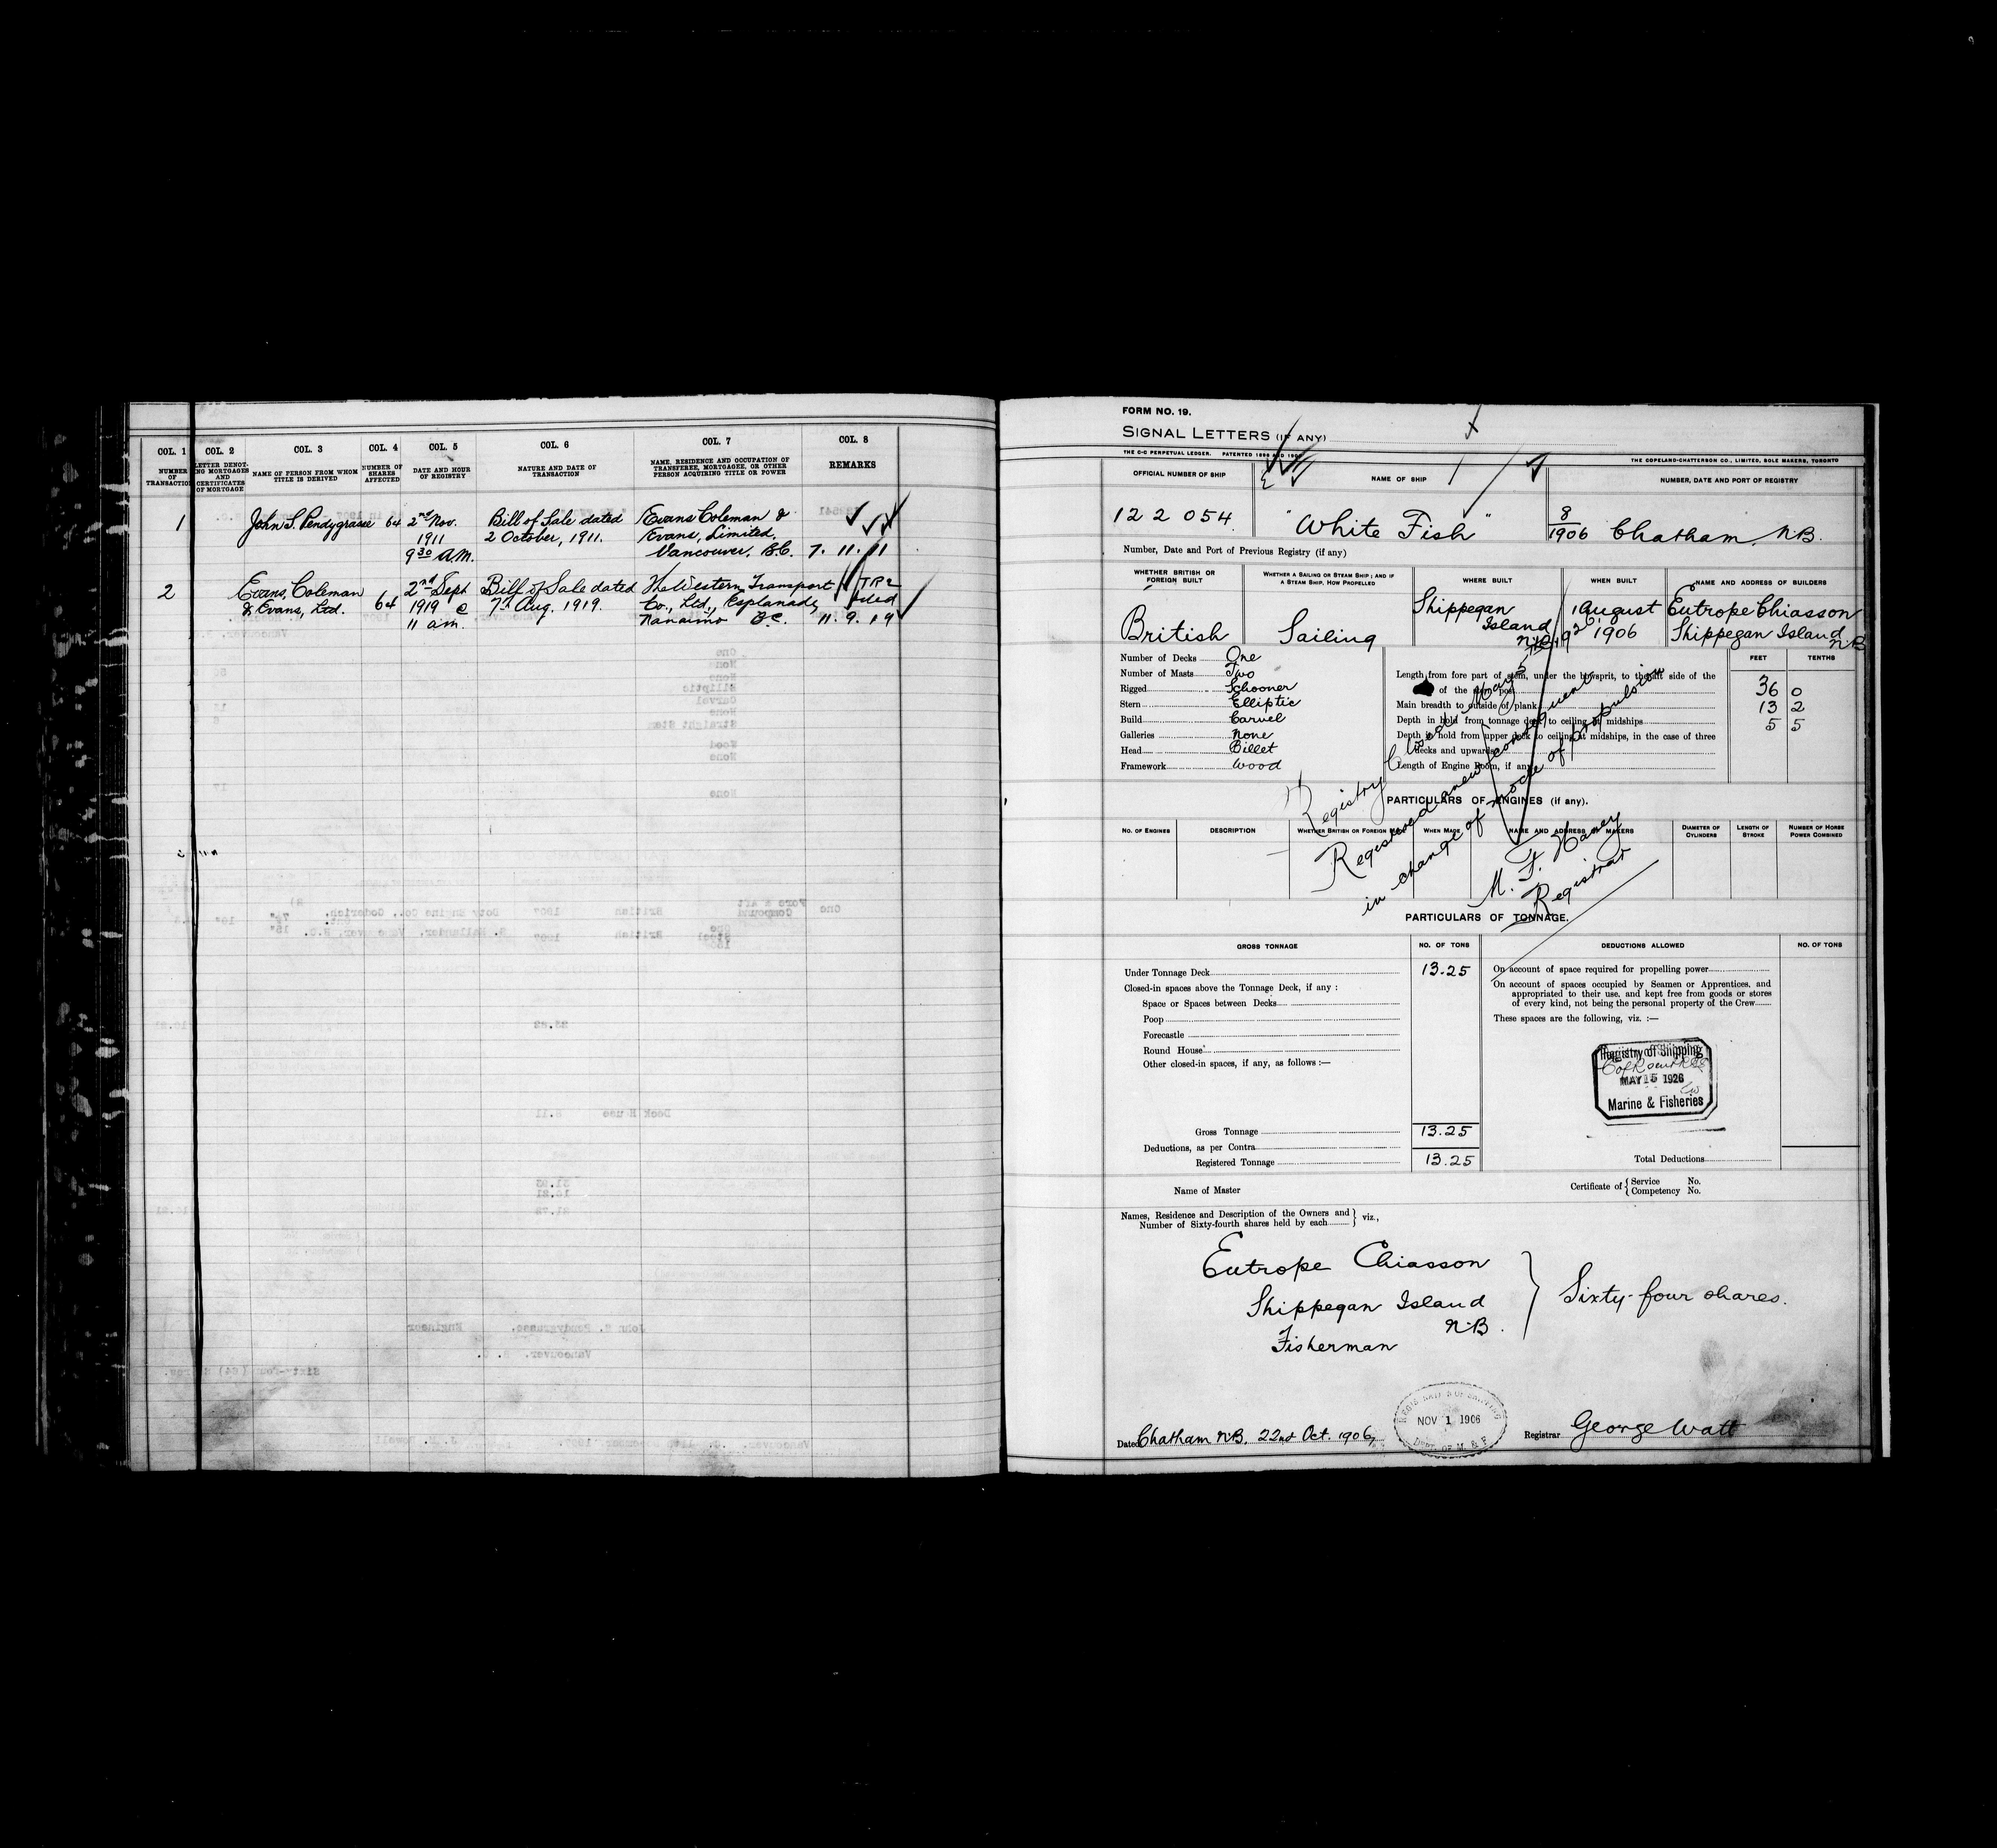 COL. 1 COL. 2 COL. 3 COL. 4 COL. 5 COL. 6 COL. 7 COL. 8
NUMBER OF TRANSACTION
LETTER DENOTING MORTGAGES AND CERTIFICATES OF MORTGAGE
NAME OF PERSON FROM WHOM TITLE IS DERIVED
NUMBER OF SHARES AFFECTED
DATE AND HOUR OF REGISTRY
NATURE AND DATE OF TRANSACTION
NAME, RESIDENCE AND OCCUPATION OF TRANSFEREE, MORTGAGEE, OR OTHER PERSON ACQUIRING TITLE OR POWER
REMARKS
1 John S. Pendygrasse 64 2nd Nov. Bill of Sale dated Evans Coleman &
1911 2 October, 1911. Evans, Limited,
9 30 A.M. Vancouver, B.C. 7. 11. 11
2 Evans, Coleman 2nd Sept Bill of Sale dated The Western Transport
& Evans, Ltd. 64 1919 @ 7th Aug. 1919. Co., Ltd., Esplanade,
11 a.m. Nanaimo B.C. 11. 9. 19
FORM NO. 19.
SIGNAL LETTERS (IF ANY)
THE C-C PERPETUAL LEDGER. PATENTED
THE COPELAND-CHATTERSON CO., LIMITED, SOLE MAKERS, TORONTO
OFFICIAL NUMBER OF SHIP NAME OF SHIP NUMBER, DATE AND PORT OF REGISTRY
122054. "White Fish" 8/1906 Chatham, N.B.
Number, Date and Port of Previous Registry (if any)
WHETHER BRITISH OR FOREIGN BUILT
WHETHER A SAILING OR STEAM SHIP; AND IF A STEAM SHIP, HOW PROPELLED
WHERE BUILT
WHEN BUILT
NAME AND ADDRESS OF BUILDERS
British Sailing Shippegan Island N.B. August 1906 Eutrope Chiasson
Shippegan Island N.B
Number of Decks One
Number of Masts Two
Rigged Schooner
Stern Elliptic
Build Carvel
Galleries None
Head Billet
Framework Wood
FEET TENTHS
Length from fore part of stem, under the bowsprit, to the aft side of the
of the stern post 36 0
Main breadth to outside of plank 13 2
Depth in hold from tonnage deck to ceiling at midships 5 5
Depth in hold from upper deck to ceiling at midships, in the case of three
decks and upwards
Length of Engine Room, if any
Registry Closed May
Registered anew consequent
in change of mode of propulsion
M. F. Haney
Registrar
PARTICULARS OF ENGINES (if any).
NO. OF ENGINES DESCRIPTION WHETHER BRITISH OR FOREIGN MADE WHEN MADE NAME AND ADDRESS OF MAKERS DIAMETER OF CYLINDERS LENGTH OF STROKE NUMBER OF HORSE POWER COMBINED
PARTICULARS OF TONNAGE.
GROSS TONNAGE NO. OF TONS DEDUCTIONS ALLOWED NO. OF TONS
Under Tonnage Deck 13.25
Closed-in spaces above the Tonnage Deck, if any :
Space or Spaces between Decks
Poop
Forecastle
Round House
Other closed-in spaces, if any, as follows :—
Gross Tonnage 13.25
Deductions, as per Contra
Registered Tonnage 13.25
On account of space required for propelling power
On account of spaces occupied by Seamen or Apprentices, and
appropriated to their use, and kept free from goods or stores
of every kind, not being the personal property of the Crew
These spaces are the following, viz. :—
Registry of Shipping
MAY 15 1926
Marine & Fisheries
Total Deductions
Name of Master
Certificate of { Service No.
Competency No.
Names, Residence and Description of the Owners and
Number of Sixty-fourth shares held by each } viz.,
Eutrope Chiasson
Shippegan Island
N.B.
Fisherman
Sixty-four shares.
Dated Chatham N.B. 22nd Oct. 1906,
NOV 1 1906
DEPT. OF M. & F.
Registrar George Watt